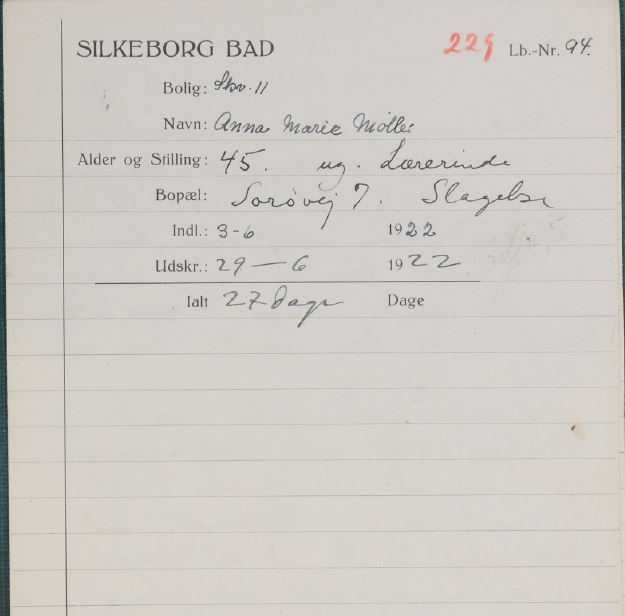 SILKEBORG BAD 229 Lb.-Nr. 94.
Bolig: Skv. 11
Navn: Anna Marie Møller
Alder og Stilling: 45. ug. Lærerinde
Bopæl: Sorøvej 7. Slagelse
Indl.: 3-6 1922
Udskr.: 29 — 6 1922
Ialt 27 Dage Dage